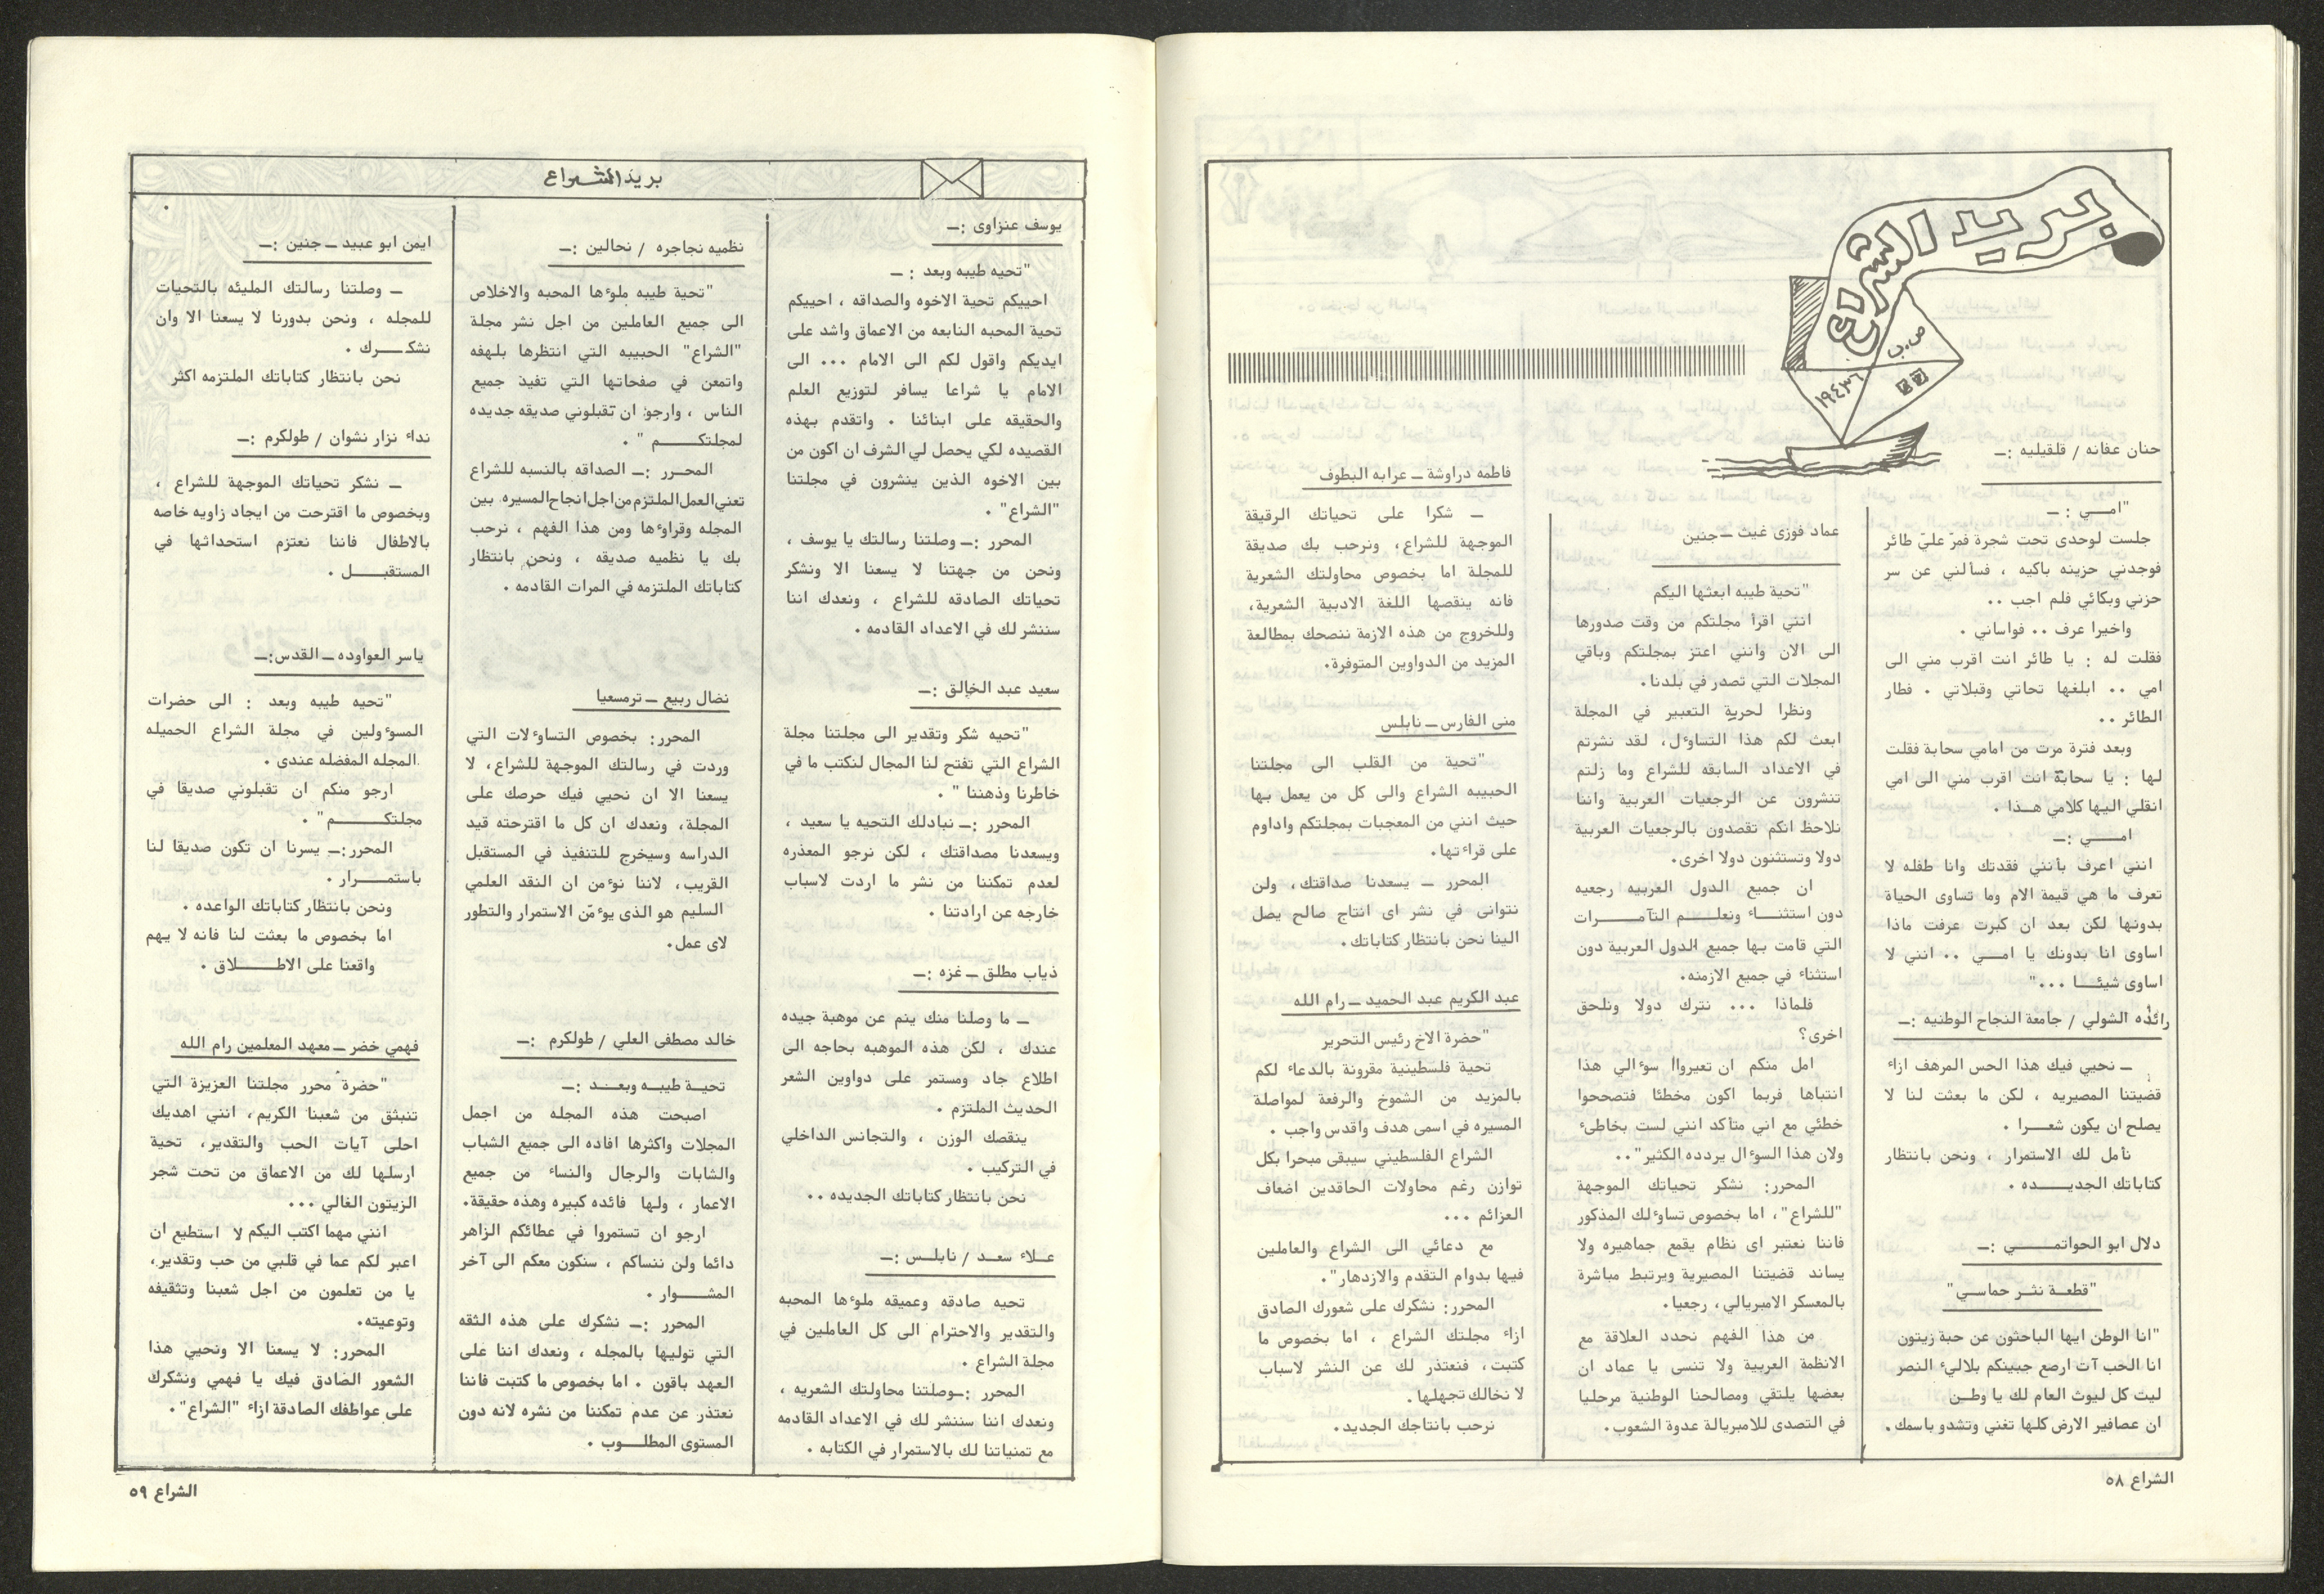 بريد الشراع
ص.ب
١٩٤٣٦
حنان عفانه / قلقيليه :ـ
"امــي : ـ
جلست لوحدي تحت شجرة فمرّ عليّ طائر
فوجدني حزينه باكيه ، فسألني عن سر
حزني وبكائي فلم اجب ..
واخيرا عرف .. فواساني .
فقلت له : يا طائر انت اقرب مني الى
امي .. ابلغها تحاتي وقبلاتي . فطار
الطائر ..
وبعد فترة مرت من امامي سحابة فقلت
لها : يا سحابة انت اقرب مني الى امي
انقلي اليها كلامي هـذا .
امـــــي :ـ
انني اعرف بأنني فقدتك وانا طفله لا
تعرف ما هي قيمة الام وما تساوى الحياة
بدونها لكن بعد ان كبرت عرفت ماذا
اساوى انا بدونك يا امـــي .. انني لا
اساوى شيئـــا ..."
رائده الشولي / جامعة النجاح الوطنيه :ـ
ـ نحيي فيك هذا الحس المرهف ازاء
قضيتنا المصيريه ، لكن ما بعثت لنا لا
يصلح ان يكون شعـــرا .
نأمل لك الاستمرار ، ونحن بانتظار
كتاباتك الجديـــــده .
دلال ابو الحواتمـــــي :ـ
"قطعـة نثـر حماسـي"
"انا الوطن ايها الباحثون عن حبة زيتون
انا الحب آت ارصع جبينكم بلالىء النصر
ليت كل ليوث العام لك يا وطـن
ان عصافير الارض كلها تغني وتشدو باسمك .
عماد فوزى غيث ـ جنين
"تحية طيبه ابعثها اليكم
انني اقرأ مجلتكم من وقت صدورها
الى الان وانني اعتز بمجلتكم وباقي
المجلات التي تصدر في بلدنا.
ونظرا لحرية التعبير في المجلة
ابعث لكم هذا التساوءل، لقد نشرتم
في الاعداد السابقه للشراع وما زلتم
تنشرون عن الرجعيات العربية واننا
نلاحظ انكم تقصدون بالرجعيات العربية
دولا وتستثنون دولا اخرى.
ان جميع الدول العربيه رجعيه
دون استثنـــاء ونعلـــم التآمـــرات
التي قامت بها جميع الدول العربية دون
استثناء في جميع الازمنه.
فلماذا ... نترك دولا ونلحق
اخرى؟
امل منكم ان تعيرواا سوءالي هذا
انتباها فربما اكون مخطئا فتصححوا
خطئي مع اني متأكد انني لست بخاطىء
ولان هذا السوءال يردده الكثير"..
المحرر: نشكر تحياتك الموجهة
"للشراع"، اما بخصوص تساوءلك المذكور
فاننا نعتبر اى نظام يقمع جماهيره ولا
يساند قضيتنا المصيرية ويرتبط مباشرة
بالمعسكر الامبريالي، رجعيا.
من هذا الفهم نحدد العلاقة مع
الانظمة العربية ولا تنسى يا عماد ان
بعضها يلتقي ومصالحنا الوطنية مرحليا
في التصدى للامبريالة عدوة الشعوب.
فاطمه دراوشة ـ عرابه البطوف
ـ شكرا على تحياتك الرقيقة
الموجهة للشراع، ونرحب بك صديقة
للمجلة اما بخصوص محاولتك الشعرية
فانه ينقصها اللغة الادبية الشعرية،
وللخروج من هذه الازمة ننصحك بمطالعة
المزيد من الدواوين المتوفرة.
منى الفارس ـ نابلس
"تحية من القلب الى مجلتنا
الحبيبه الشراع والى كل من يعمل بها
حيث انني من المعجبات بمجلتكم واداوم
على قراءتها.
المحرر ـ يسعدنا صداقتك، ولن
نتوانى في نشر اى انتاج صالح يصل
الينا نحن بانتظار كتاباتك.
عبد الكريم عبد الحميد ـ رام الله
"حضرة الاخ رئيس التحرير
تحية فلسطينية مقرونة بالدعاء لكم
بالمزيد من الشموخ والرفعة لمواصلة
المسيره في اسمى هدف واقدس واجب .
الشراع الفلسطيني سيبقى مبحرا بكل
توازن رغم محاولات الحاقدين اضعاف
العزائم ...
مع دعائي الى الشراع والعاملين
فيها بدوام التقدم والازدهار".
المحرر: نشكرك على شعورك الصادق
ازاء مجلتك الشراع ، اما بخصوص ما
كتبت، فنعتذر لك عن النشر لاسباب
لا نخالك تجهلها.
نرحب بانتاجك الجديد.
الشراع ٥٨
بريد الشراع
يوسف عنزاوى :ـ
"تحيه طيبه وبعد : ـ
احييكم تحية الاخوه والصداقه ، احييكم
تحية المحبه النابعه من الاعماق واشد على
ايديكم واقول لكم الى الامام ... الى
الامام يا شراعا يسافر لتوزيع العلم
والحقيقه على ابنائنا . واتقدم بهذه
القصيده لكي يحصل لي الشرف ان اكون من
بين الاخوه الذين ينشرون في مجلتنا
"الشراع" .
المحرر :ـ وصلتنا رسالتك يا يوسف ،
ونحن من جهتنا لا يسعنا الا ونشكر
تحياتك الصادقه للشراع ، ونعدك اننا
سننشر لك في الاعداد القادمه .
سعيد عبد الخالق :ـ
"تحيه شكر وتقدير الى مجلتنا مجلة
الشراع التي تفتح لنا المجال لنكتب ما في
خاطرنا وذهننا " .
المحرر :ـ نبادلك التحيه يا سعيد ،
ويسعدنا مصداقتك ، لكن نرجو المعذره
لعدم تمكننا من نشر ما اردت لاسباب
خارجه عن ارادتنا .
ذياب مطلق ـ غزه :ـ
ـ ما وصلنا منك ينم عن موهبة جيده
عندك ، لكن هذه الموهبه بحاجه الى
اطلاع جاد ومستمر على دواوين الشعر
الحديث الملتزم .
ينقصك الوزن ، والتجانس الداخلي
في التركيب .
نحن بانتظار كتاباتك الجديده ..
عـلاء سعـد / نابلـس :ـ
تحيه صادقه وعميقه ملوءها المحبه
والتقدير والاحترام الى كل العاملين في
مجلة الشراع .
المحرر :ـ وصلتنا محاولتك الشعريه ،
ونعدك اننا سننشر لك في الاعداد القادمه
مع تمنياتنا لك بالاستمرار في الكتابه .
نظميه نجاجره / نحالين :ـ
"تحية طيبه ملوءها المحبه والاخلاص
الى جميع العاملين من اجل نشر مجلة
"الشراع" الحبيبه التي انتظرها بلهفه
واتمعن في صفحاتها التي تفيد جميع
الناس ، وارجو ان تقبلوني صديقه جديده
لمجلتكـــــم " .
المحـرر :ـ الصداقه بالنسبه للشراع
تعني العمل الملتزم من اجل انجاح المسيره بين
المجله وقراوءها ومن هذا الفهم ، نرحب
بك يا نظميه صديقه ، ونحن بانتظار
كتاباتك الملتزمه في المرات القادمه .
نضال ربيع ـ ترمسعيا
المحرر: بخصوص التساوءلات التي
وردت في رسالتك الموجهة للشراع، لا
يسعنا الا ان نحيي فيك حرصك على
المجلة، ونعدك ان كل ما اقترحته قيد
الدراسه وسيخرج للتنفيذ في المستقبل
القريب، لاننا نوءمن ان النقد العلمي
السليم هو الذى يوءمّن الاستمرار والتطور
لاى عمل.
خالد مصطفى العلي / طولكرم :ـ
تحيـة طيبـه وبعـد :ـ
اصبحت هذه المجله من اجمل
المجلات واكثرها افاده الى جميع الشباب
والشابات والرجال والنساء من جميع
الاعمار ، ولها فائده كبيره وهذه حقيقة.
ارجو ان تستمروا في عطائكم الزاهر
دائما ولن ننساكم ، سنكون معكم الى آخر
المشـــوار .
المحرر :ـ نشكرك على هذه الثقه
التي توليها بالمجله ، ونعدك اننا على
العهد باقون . اما بخصوص ما كتبت فاننا
نعتذر عن عدم تمكننا من نشره لانه دون
المستوى المطلـــوب .
ايمن ابو عبيد ـ جنين :ـ
ـ وصلتنا رسالتك المليئه بالتحيات
للمجله ، ونحن بدورنا لا يسعنا الا وان
نشكـــــرك .
نحن بانتظار كتاباتك الملتزمه اكثر
نداء نزار نشوان / طولكرم :ـ
ـ نشكر تحياتك الموجهة للشراع ،
وبخصوص ما اقترحت من ايجاد زاويه خاصه
بالاطفال فاننا نعتزم استحداثها في
المستقبـــــل .
ياسر العواوده ـ القدس:ـ
"تحيه طيبه وبعد : الى حضرات
المسوءولين في مجلة الشراع الجميله
المجله المفضله عندى .
ارجو منكم ان تقبلوني صديقا في
مجلتكـــــــم" .
المحرر:ـ يسرنا ان تكون صديقا لنا
باستمـــــرار .
ونحن بانتظار كتاباتك الواعده .
اما بخصوص ما بعثت لنا فانه لا يهم
واقعنا على الاطـــــلاق .
فهمي خضر ـ معهد المعلمين رام الله
"حضرة محرر مجلتنا العزيزة التي
تنبثق من شعبنا الكريم، انني اهديك
احلى آيات الحب والتقدير، تحية
ارسلها لك من الاعماق من تحت شجر
الزيتون الغالي ...
انني مهما اكتب اليكم لا استطيع ان
اعبر لكم عما في قلبي من حب وتقدير،
يا من تعلمون من اجل شعبنا وتثقيفه
وتوعيته.
المحرر: لا يسعنا الا ونحيي هذا
الشعور الصادق فيك يا فهمي ونشكرك
على عواطفك الصادقة ازاء "الشراع".
الشراع ٥٩